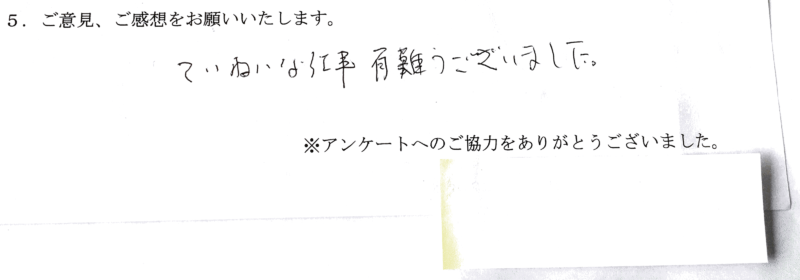 5．ご意見、ご感想をお願いいたします。
ていねいな仕事 有難うございました。
※アンケートへのご協力をありがとうございました。